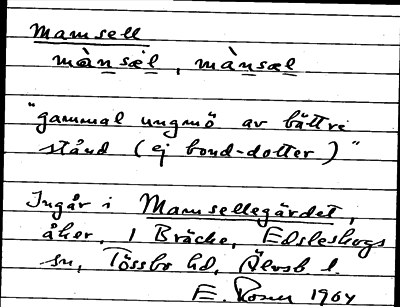 Mamsell
mànsèl, mànsæl
"gammal ungmö av bättre
stånd (ej bond-dotter)"
Ingår i Mamsellegärdet,
åker, i Bräcke, Edsleskogs
sn, Tössbo hd, Älvsb l.
E. Rosen 1964